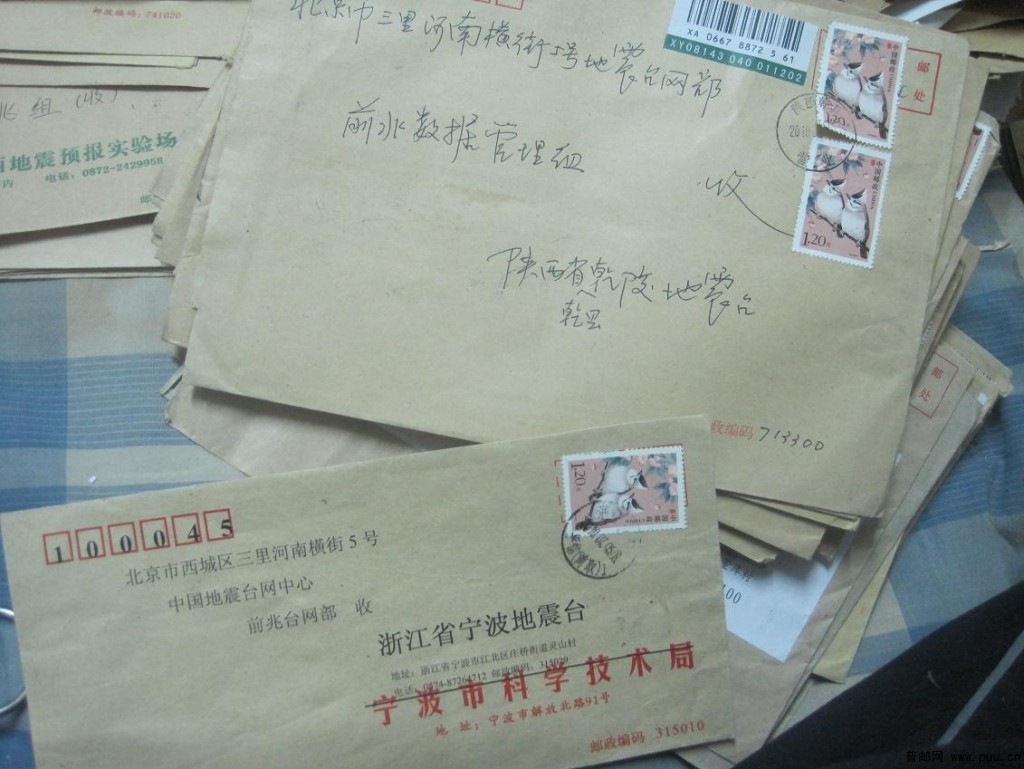 邮政编码：741020
兆组（收）.
地震预报实验场
电话：0872-2429958
XA D667 8872 5 61
XY08143 040 011202
北京市三里河南横街5号地震台网部
前兆数据管理组
收
陕西省乾陵地震台
乾县
邮政编码 713300
邮
处
中国邮政
1.20元
中国邮政
1.20元
2010
邮
处
100045
北京市西城区三里河南横街5号
中国地震台网中心
前兆台网部 收
1.20元
中国邮政
浙江省宁波地震台
地址：浙江省宁波市江北区庄桥街道灵山村
电话：0574-87264712 邮政编码：315029
宁波市科学技术局
地址：宁波市解放北路91号
邮政编码 315010
普邮网 www.pyu.cn